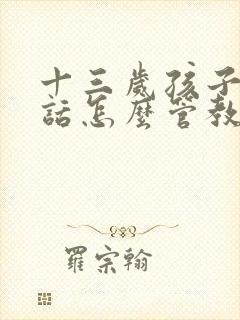 十三歲孩子
話怎麼管教
羅宗翰